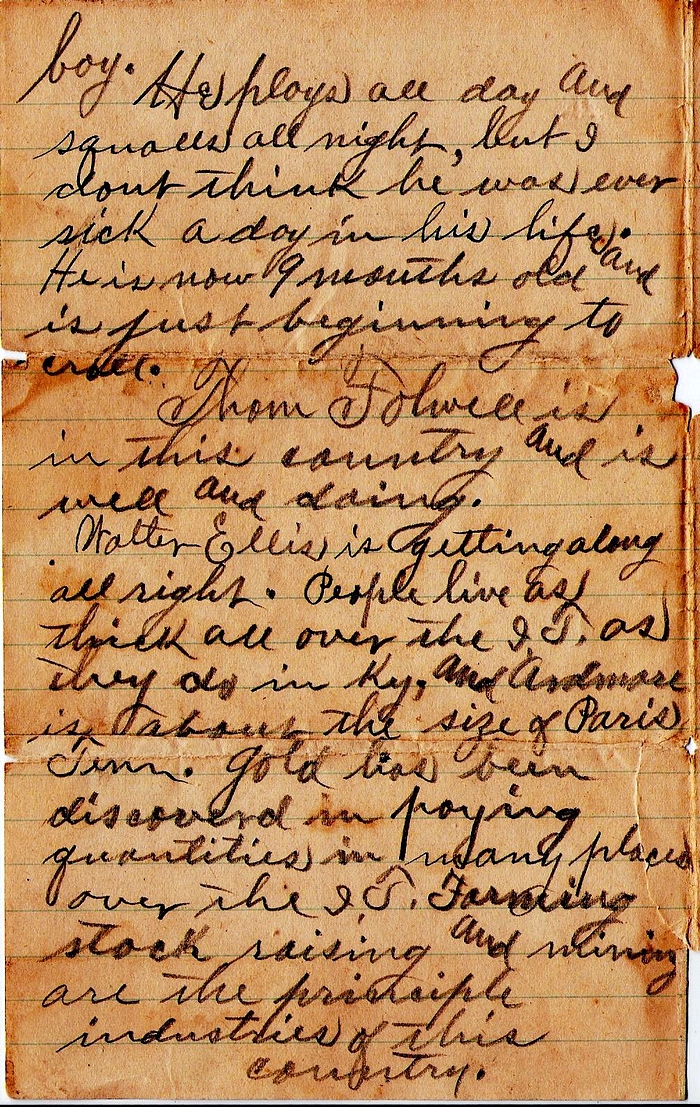 boy.
He plays all day and
squalls all night, but I
dont think he was ever
sick a day in his life. and
He is now 9 months old
is just beginning to
crall.
Thom Folwell is
in this country and is
well and doing.
Walter Ellis is getting along
all right. People live as
thick all over the I.T. as
they do in Ky, and Ardmore
is about the size of Paris
Tenn. Gold has been
discoverd in paying
quantities in many places
over the I.T. Farming
stock raising and mining
are the principle
industries of this
country.